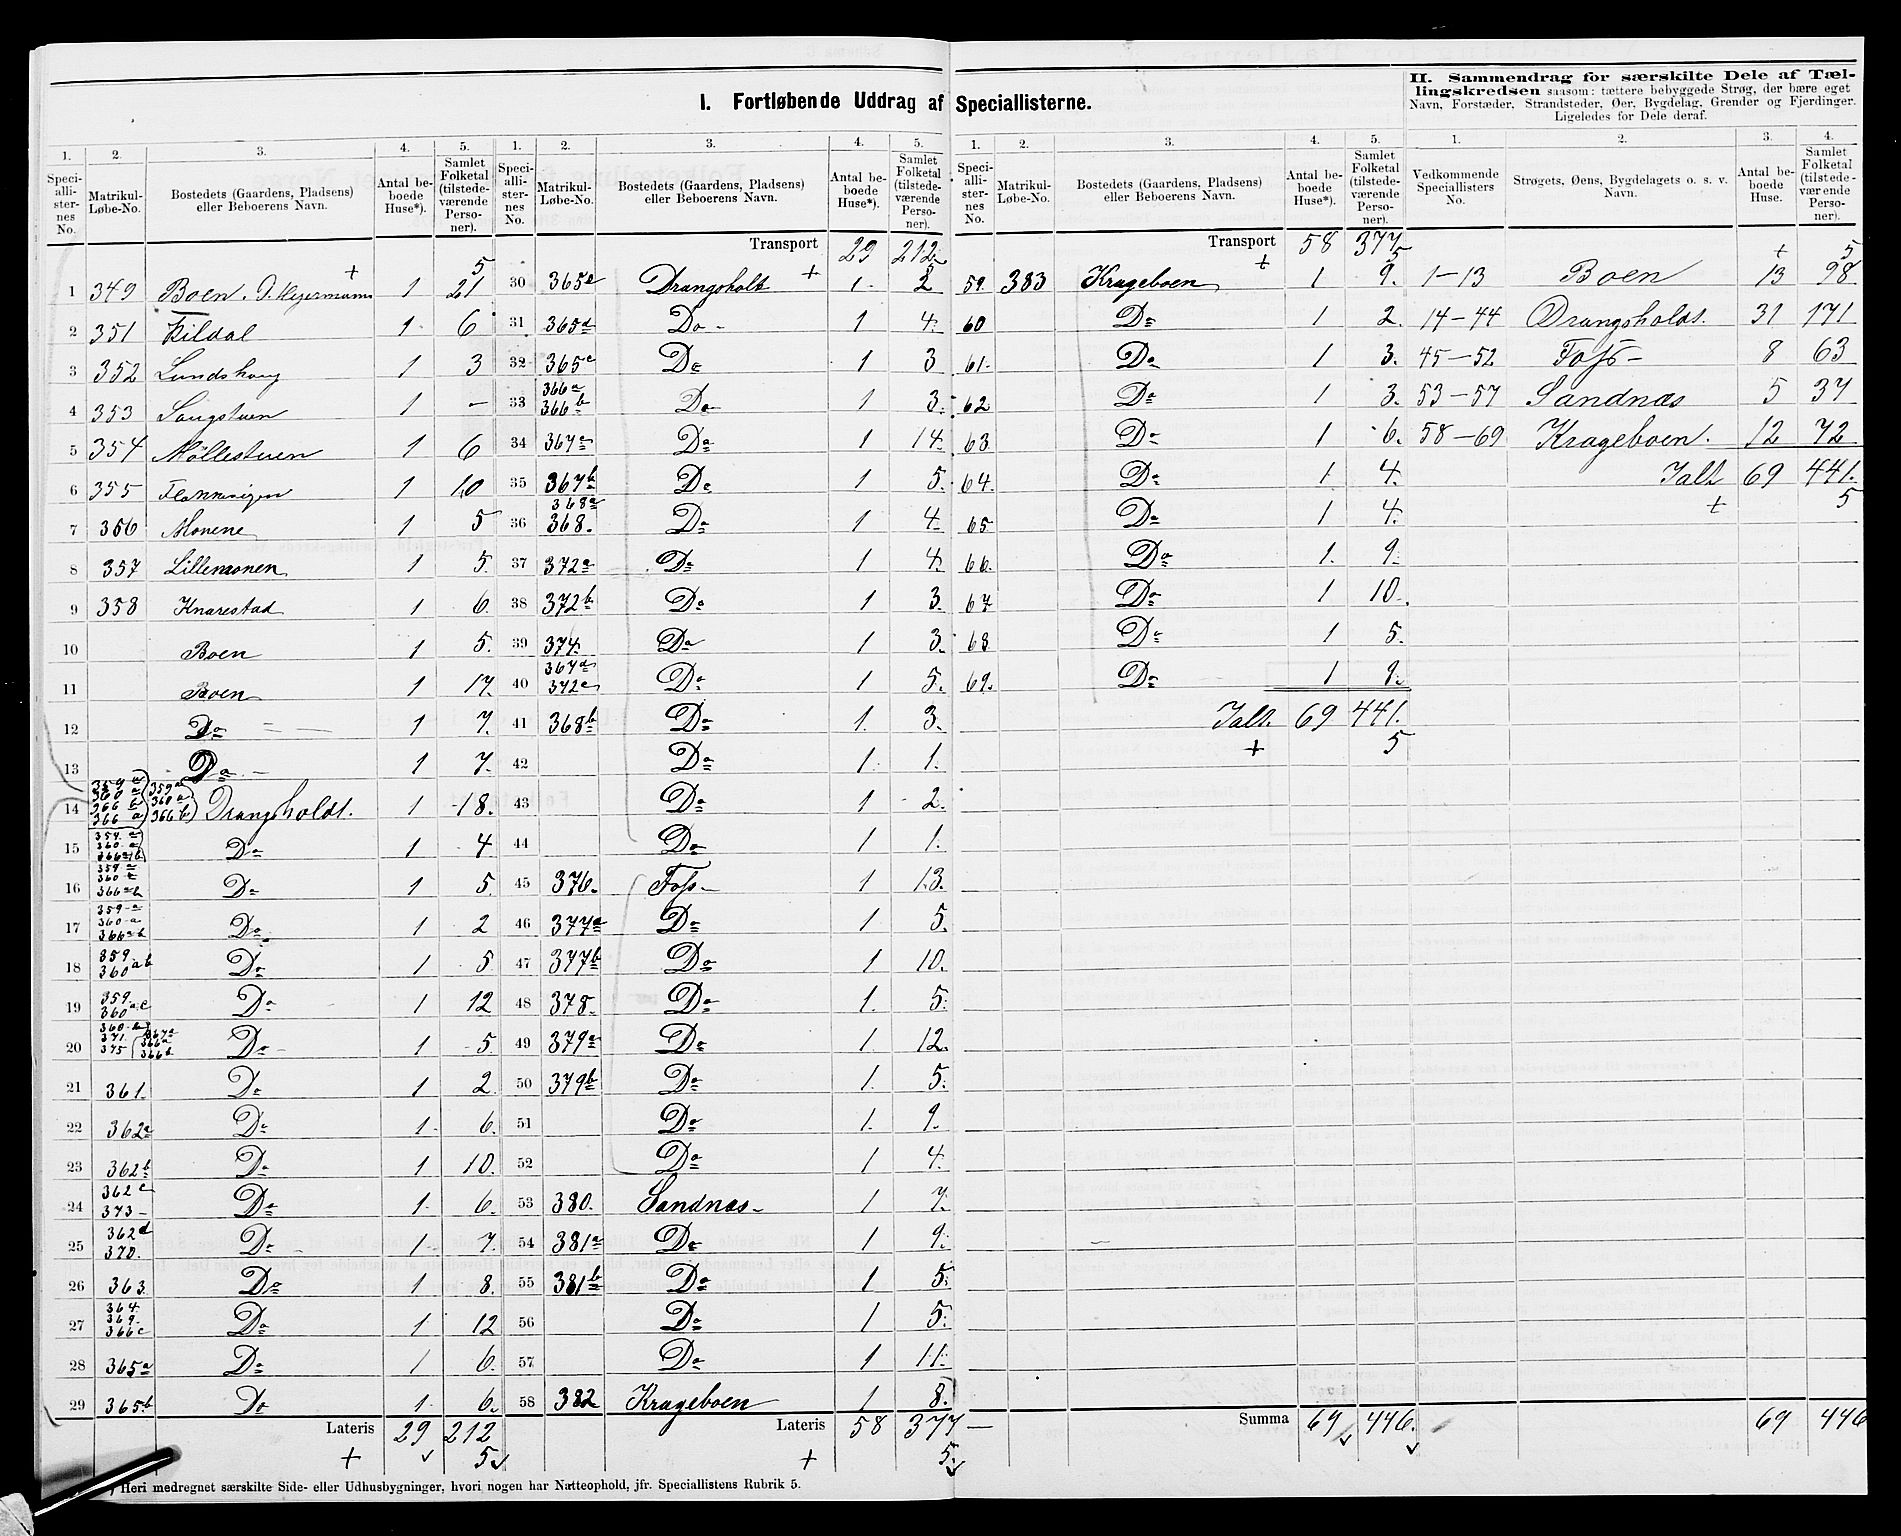 I. Fortløbende Uddrag af Speciallisterne.
II. Sammendrag for særskilte Dele af Tællingskredsen saasom: tættere bebyggede Strøg, der bære eget
Navn, Forstæder, Strandsteder, Øer, Bygdelag, Grender og Fjerdinger.
Ligeledes for Dele deraf.
1. 2. 3. 4. 5.
Speciallisternes No. Matrikul-Løbe-No. Bostedets (Gaardens, Pladsens) eller Beboerens Navn. Antal beboede Huse*). Samlet Folketal (tilstedeværende Personer).
+ 5
1 349 Boen. 1 21
2 351 Fildal 1 6
3 352 Lundshaug 1 3
4 353 Sangstuen 1 -
5 354 Møllestuen 1 6
6 355 1 10
7 356 Monene 1 5
8 357 Lillemonen 1 5.
9 358 Knarestad 1 6.
10 Boen 1 5.
11 Boen 1 17.
12 Do 1 7.
13 Do 1 7.
14 359 a 360 a 366 b 366 a 359 a 360 a 366 b Drangsholdt. 1 18.
15 359 a 360 a 366 a b Do 1 4.
16 359 a 360 366 a b Do 1 5.
17 359 a 360 a 366 a b Do 1 2
18 359 360 ab Do 1 5
19 359. 360 a c Do 1 12
20 360 371 375 367 a 366 a 366 b Do 1 5.
21 361. Do 1 2.
22 362 a Do 1 6.
23 362 b Do 1 10.
24 362 c 373 Do 1 6.
25 362 d 370. Do 1 7.
26 363. Do 1 8.
27 364. 369. 366 c Do 1 12
28 365 a Do 1 6.
29 365 b Do 1 6.
Lateris 29 212
+ 5
1. 2. 3. 4. 5.
Speciallisternes No. Matrikul-Løbe-No. Bostedets (Gaardens, Pladsens) eller Beboerens Navn. Antal beboede Huse*). Samlet Folketal (tilstedeværende Personer).
Transport 29 212
30 365 c Drangsholt + 1 2
31 365 d Do 1 4.
32 365 e Do 1 3
33 366 a 366 b Do 1 3.
34 367 a Do 1 14.
35 367 b Do 1 5.
36 368 a 368. Do 1 4.
37 372 a Do 1 4.
38 372 b Do 1 3.
39 374. Do 1 3.
40 367 d 372 c Do 1 5.
41 368 b Do 1. 3.
42 Do 1. 1.
43 Do 1 2.
44 Do 1 1.
45 376. Foss 1 13.
46 377 a Do 1 5.
47 377 b Do 1 10.
48 378. Do 1. 5.
49 379 a Do 1. 12.
50 379 b Do 1. 5.
51 Do 1. 9.
52 Do 1 4.
53 380. Sandnæs 1 7.
54 381 a Do 1 9.
55 381 b Do 1 5.
56 Do 1 5.
57 Do 1 11.
58 382 Krageboen 1 8.
Lateris 58 377
+ 5.
1. 2. 3. 4. 5.
Speciallisternes No. Matrikul-Løbe-No. Bostedets (Gaardens, Pladsens) eller Beboerens Navn. Antal beboede Huse*). Samlet Folketal (tilstedeværende Personer).
Transport 58 377
+ 5
59. 383 Krageboen 1 9.
60 Do 1 2.
61. Do 1 3.
62 Do 1 3.
63 Do 1 6.
64. Do 1 4.
65. Do 1 4.
66. Do 1. 9.
67 Do 1 10.
68 Do 1 5.
69. Do 1 9.
Ialt. 69 441.
+ 5
Summa 69 446.
1. 2. 3. 4.
Vedkommende Speciallisters No. Strøgets, Øens, Bygdelagets o. s. v. Navn. Antal beboede Huse. Samlet Folketal (tilstedeværende Personer).
+ 5
1-13 Boen 13 98.
14-44 Drangsholdt. 31 171
45-52 Foss 8 63
53-57 Sandnæs 5 37
58-69 Krageboen. 12 72
Ialt 69 441.
+ 5
69 446
*) Heri medregnet særskilte Side- eller Udhusbygninger, hvori nogen har Natteophold, jfr. Speciallistens Rubrik 5.